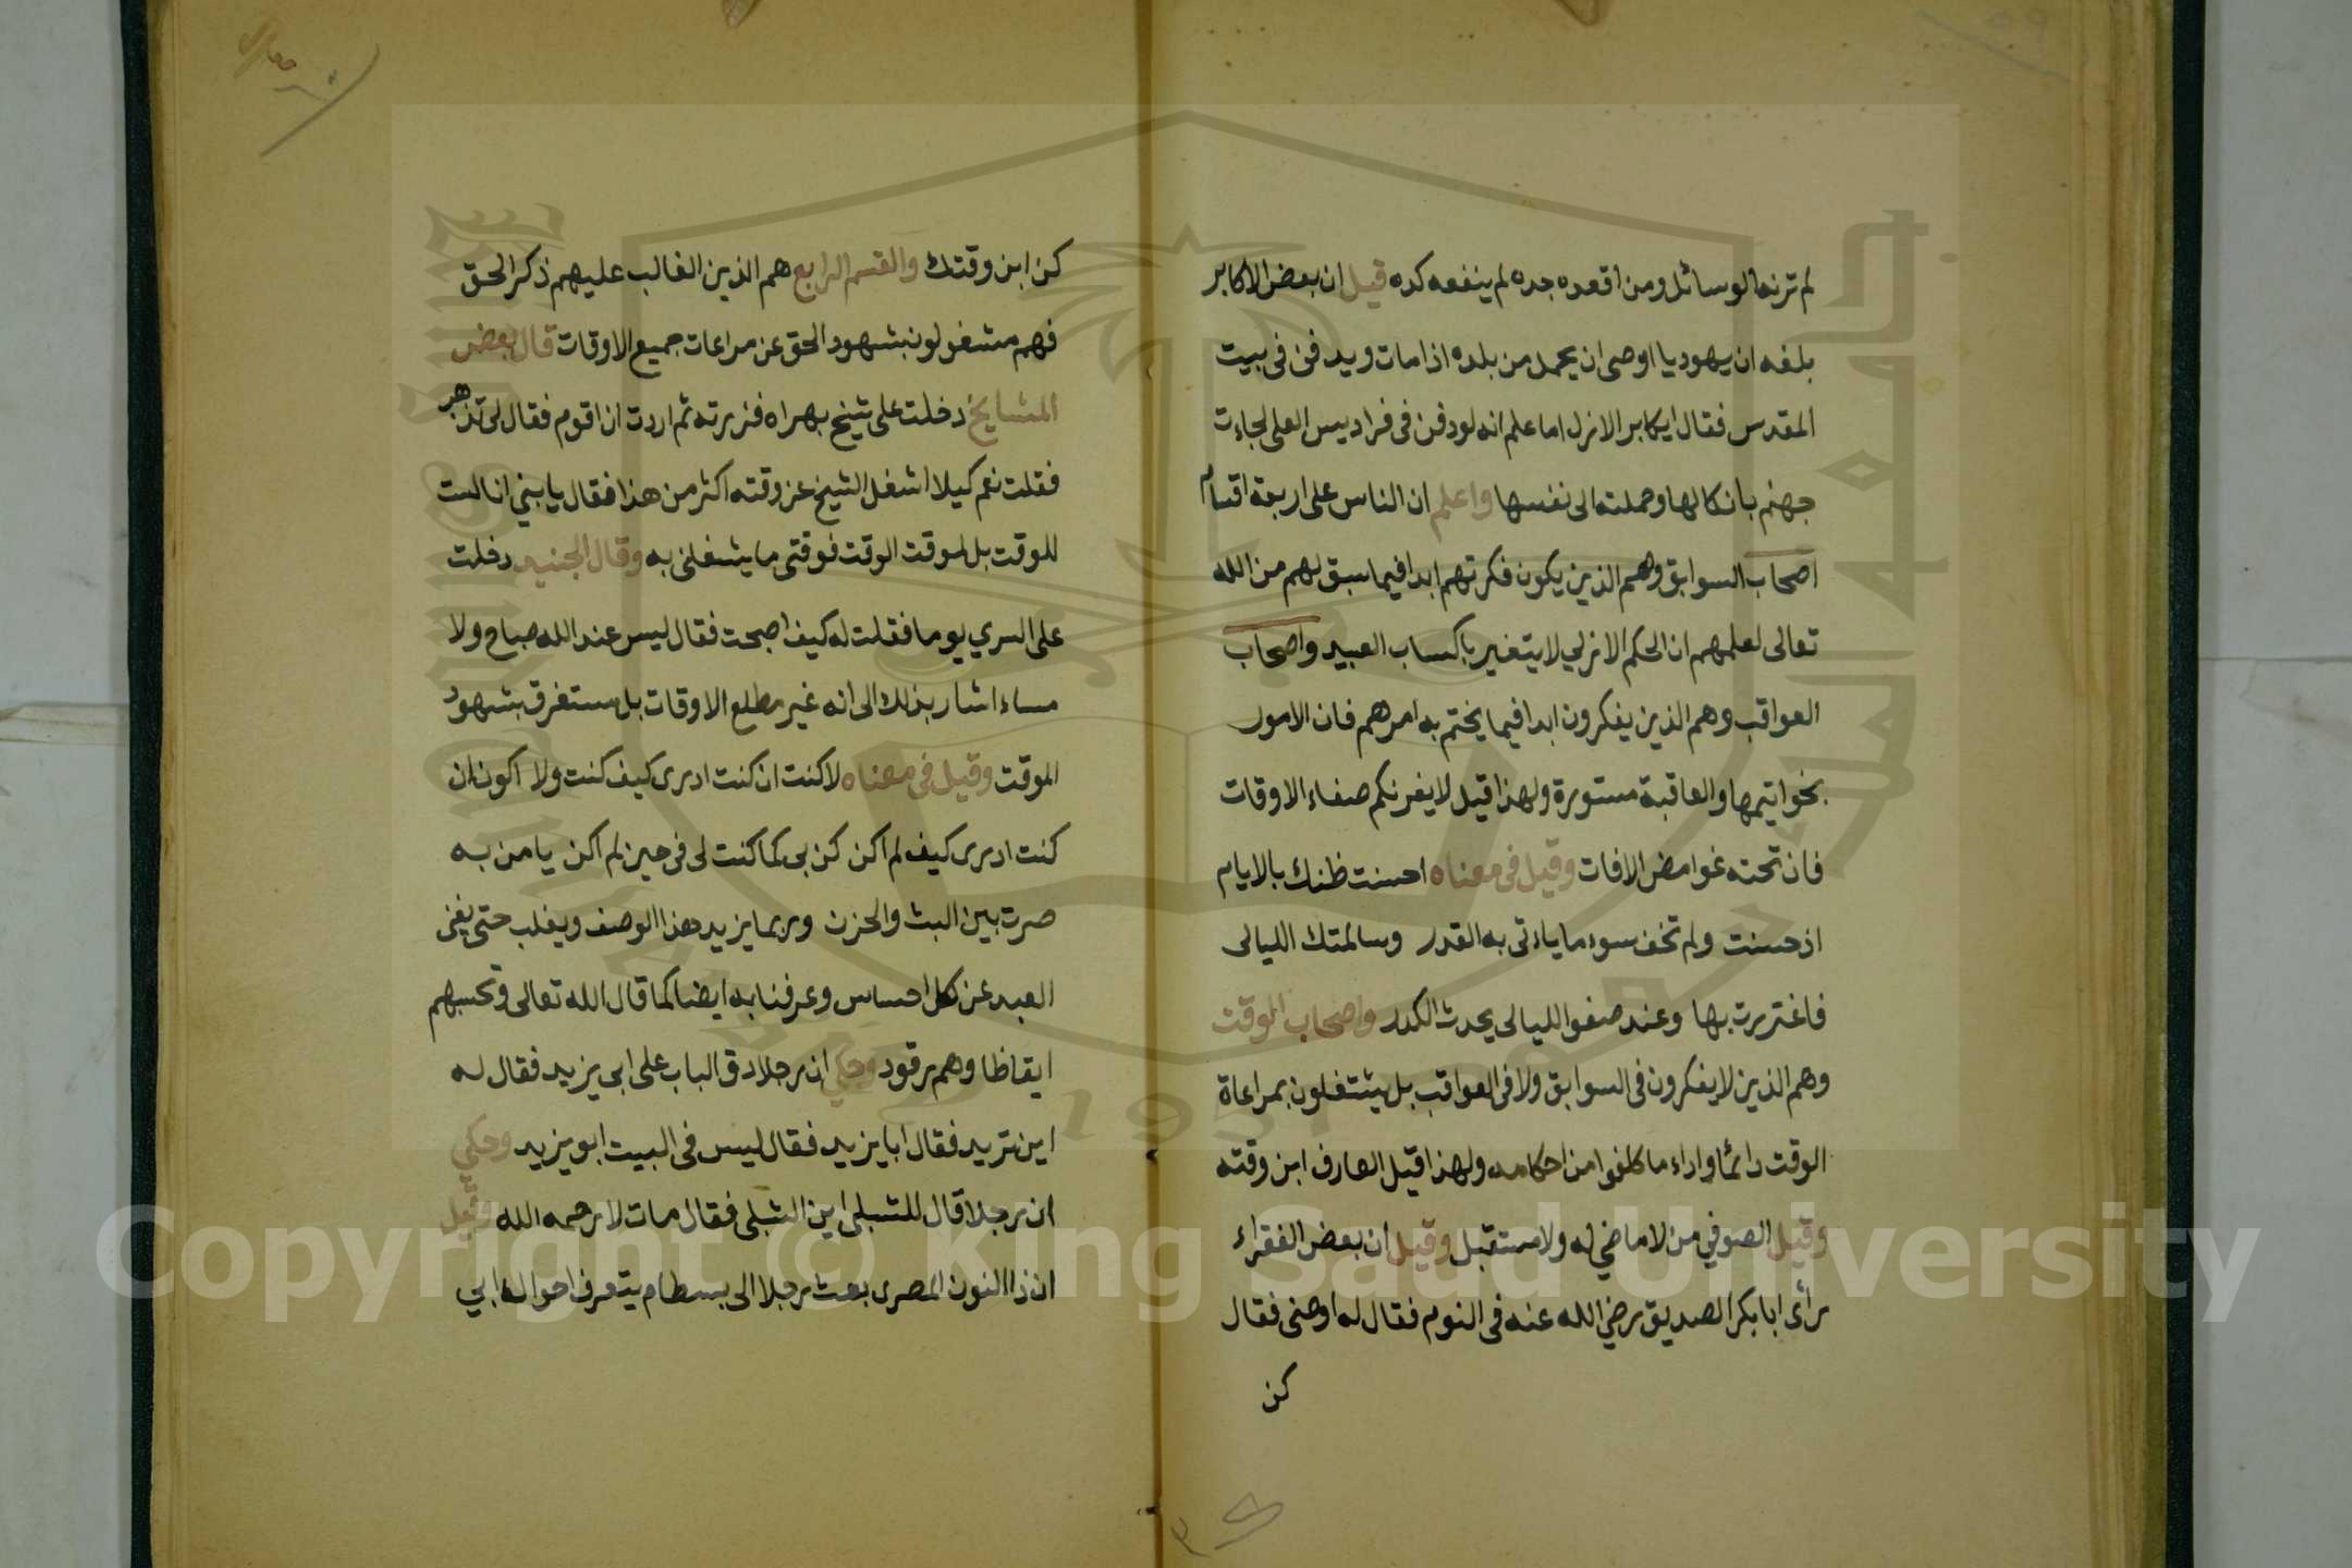 لم تزنه الوسائل ومن اقعده جده لم ينفعه كده قيل ان بعض الاكابر
بلغه ان يهوديا اوصى ان يحمل من بلده اذا مات ويدفن في بيت
المقدس فقال ايكابر الازل اما علم انه لو دفن في فراديس العلى لجاءت
جهنم بانكالها وحملته الى نفسها واعلم ان الناس على اربعة اقسام
اصحاب السوابق وهم الذين يكون فكرتهم ابدا فيما سبق لهم من الله
تعالى لعلمهم ان الحكم الازلي لا يتغير باكساب العبيد واصحاب
العواقب وهم الذين يفكرون ابدا فيما يختم به امرهم فان الامور
بخواتيمها والعاقبة مستورة ولهذا قيل لا يغرنكم صفاء الاوقات
فان تحته غوامض الافات وقيل في معناه احسنت ظنك بالايام
اذ حسنت ولم تخف سوء ما ياءتى به القدر وسالمتك الليالى
فاغتررت بها وعند صفوا الليالى يحدث الكدر واصحاب الوقت
وهم الذين لا يفكرون فى السوابق ولا فى العواقب بل يشتغلون بمراعاة
الوقت دائما واداء ما كلفوا من احكامه ولهذا قيل العارف ابن وقته
وقيل الصوفي من لا ماضي له ولا مستقبل وقيل ان بعض الفقراء
رأى ابا بكر الصديق رضي الله عنه فى النوم فقال له اوصنى فقال
كن
كن ابن وقتك والقسم الرابع هم الذين الغالب عليهم ذكر الحق
فهم مشغولون بشهود الحق عن مراعات جميع الاوقات قال بعض
المشايخ دخلت على شيخ بهراه فزرته ثم اردت ان اقوم فقال لى تذهر
فقلت نعم كيلا اشغل الشيخ عن وقته اكثر من هذا فقال يا بني انا لست
للوقت بل لموقت الوقت فوقتى ما يشغلنى به وقال الجنيد دخلت
على السري يوما فقلت له كيف اصبحت فقال ليس عند الله صباح ولا
مساء اشار بذلك الى انه غير مطلع الاوقات بل مستغرق بشهود
الموقت وقيل فى معناه لا كنت ان كنت ادرى كيف كنت ولا اكون ان
كنت ادرى كيف لم اكن كن بى كما كنت لى فى حين لم اكن يا من به
صرت بين البث والحزن وربما يزيد هذا الوصف ويغلب حتى يفنى
العبد عن كل احساس وعرفنا به ايضا كما قال الله تعالى وتحسبهم
ايقاظا وهم رقود وحكي ان رجلا دق الباب على ابى يزيد فقال له
اين تريد فقال ابا يزيد فقال ليس فى البيت ابو يزيد وحكي
ان رجلا قال للشبلى اين الشبلى فقال مات لا رحمه الله وقيل
ان ذا النون المصرى بعث رجلا الى بسطام يتعرف احوال ابي
Copyright © King Saud University
1957